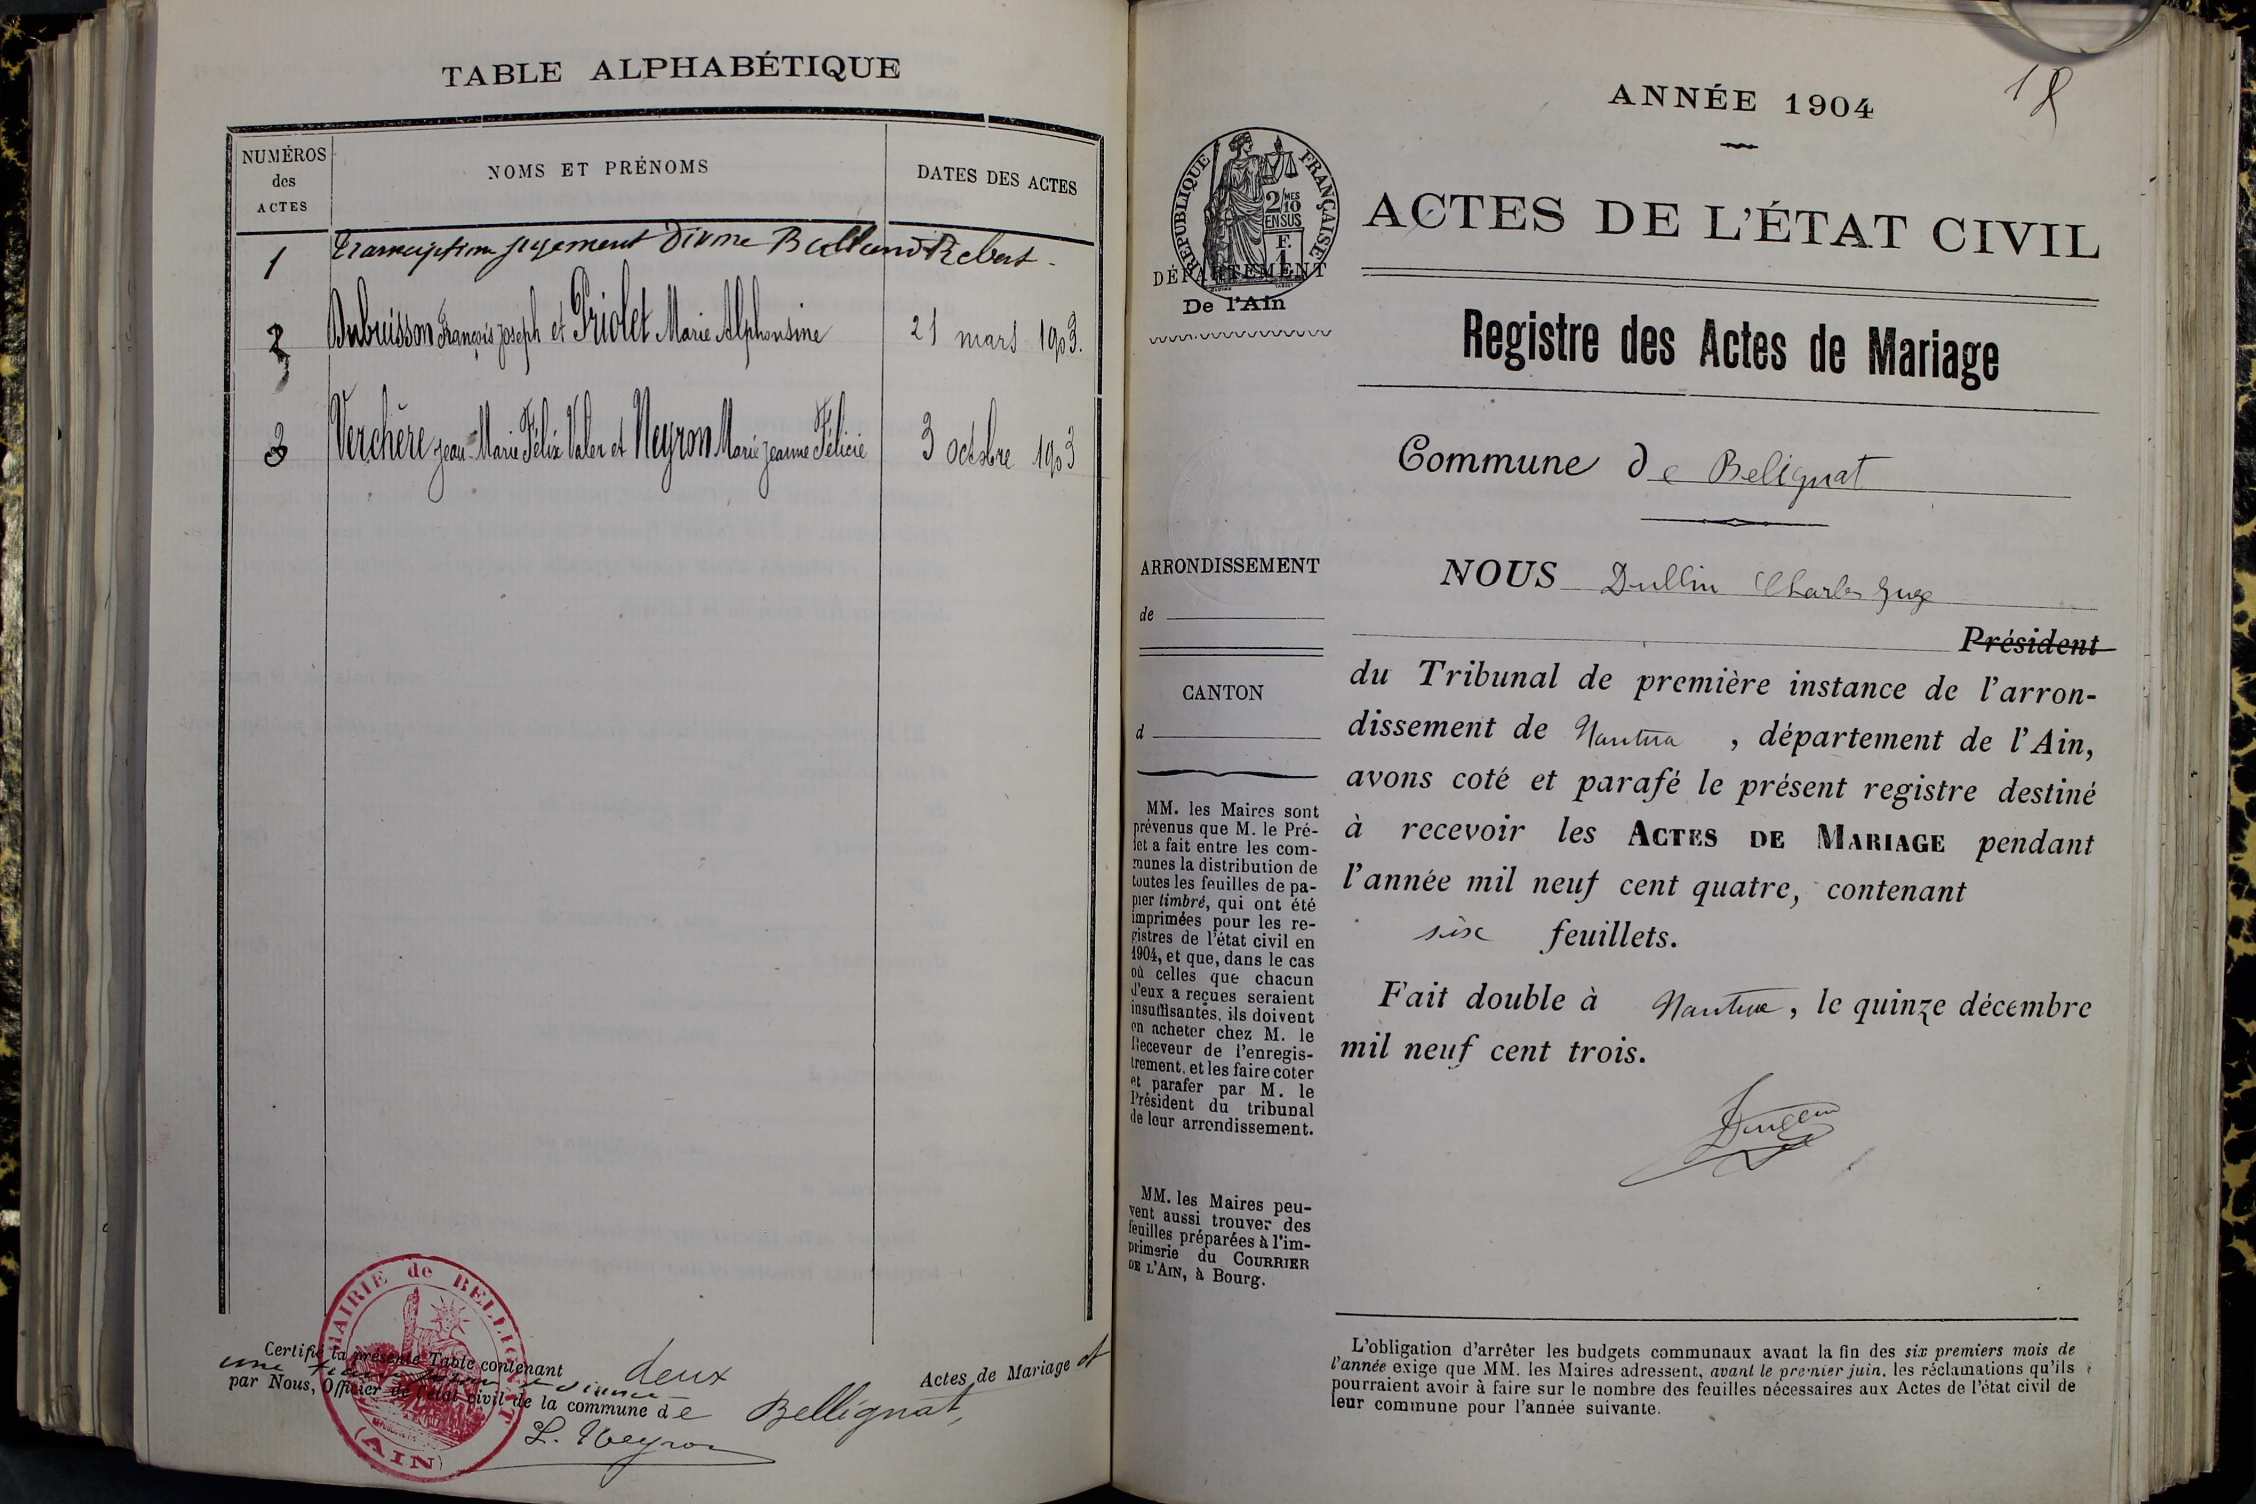 TABLE ALPHABÉTIQUE
NUMÉROS
des
ACTES
NOMS ET PRÉNOMS
DATES DES ACTES
1 Transcription jugement Divorce
2 Dubuisson François Joseph et Priolet Marie Alphonsine 21 mars 1903.
3 Verchère Jean-Marie Félix Valer et Neyron Marie Jeanne Félicie 3 octobre 1903
MAIRIE de BELLIGNAT
(AIN)
Certifié la présente Table contenant deux Actes de Mariage et
une transcription de divorce
par Nous, Officier de l'état civil de la commune de Bellignat,
L. Neyron
18
ANNÉE 1904
RÉPUBLIQUE FRANÇAISE
2/MES
10
EN SUS
F.
1
DÉPARTEMENT
De l'Ain
ACTES DE L'ÉTAT CIVIL
Registre des Actes de Mariage
Commune de Belignat
ARRONDISSEMENT
de
CANTON
d
MM. les Maires sont
prévenus que M. le Pré-
fet a fait entre les com-
munes la distribution de
toutes les feuilles de pa-
pier timbré, qui ont été
imprimées pour les re-
gistres de l'état civil en
1904, et que, dans le cas
où celles que chacun
d'eux a reçues seraient
insuffisantes, ils doivent
en acheter chez M. le
Receveur de l'enregis-
trement, et les faire coter
et parafer par M. le
Président du tribunal
de leur arrondissement.
MM. les Maires peu-
vent aussi trouver des
feuilles préparées à l'im-
primerie du COURRIER
DE L'AIN, à Bourg.
NOUS Dullin Charles Juge
Président
du Tribunal de première instance de l'arron-
dissement de Nantua, département de l'Ain,
avons coté et parafé le présent registre destiné
à recevoir les ACTES DE MARIAGE pendant
l'année mil neuf cent quatre, contenant
six feuillets.
Fait double à Nantua, le quinze décembre
mil neuf cent trois.
L'obligation d'arrêter les budgets communaux avant la fin des six premiers mois de
l'année exige que MM. les Maires adressent, avant le premier juin, les réclamations qu'ils
pourraient avoir à faire sur le nombre des feuilles nécessaires aux Actes de l'état civil de
leur commune pour l'année suivante.